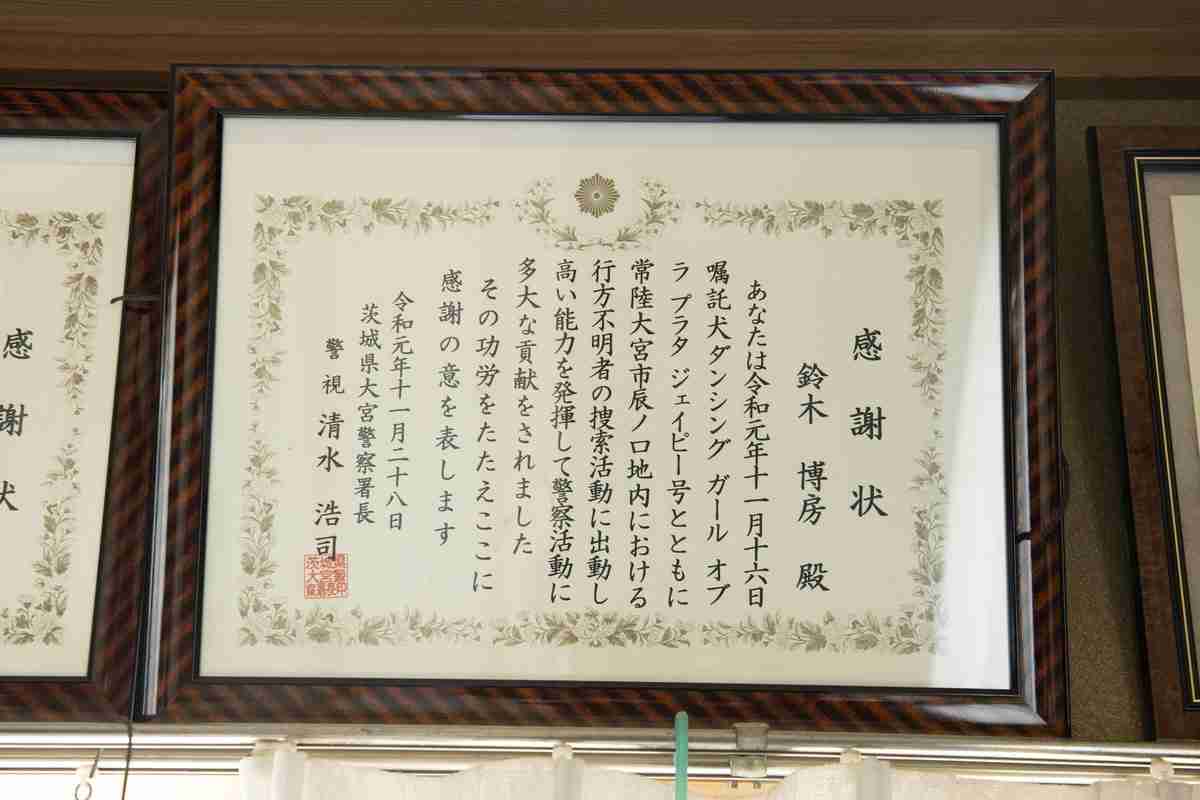 感謝状
鈴木 博房 殿
あなたは令和元年十一月十六日
嘱託犬ダンシング ガール オブ
ラ プラタ ジェイピー号とともに
常陸大宮市辰ノ口地内における
行方不明者の捜索活動に出動し
高い能力を発揮して警察活動に
多大な貢献をされました
その功労をたたえここに
感謝の意を表します
令和元年十一月二十八日
茨城県大宮警察署長
警視 清水 浩司
感謝状